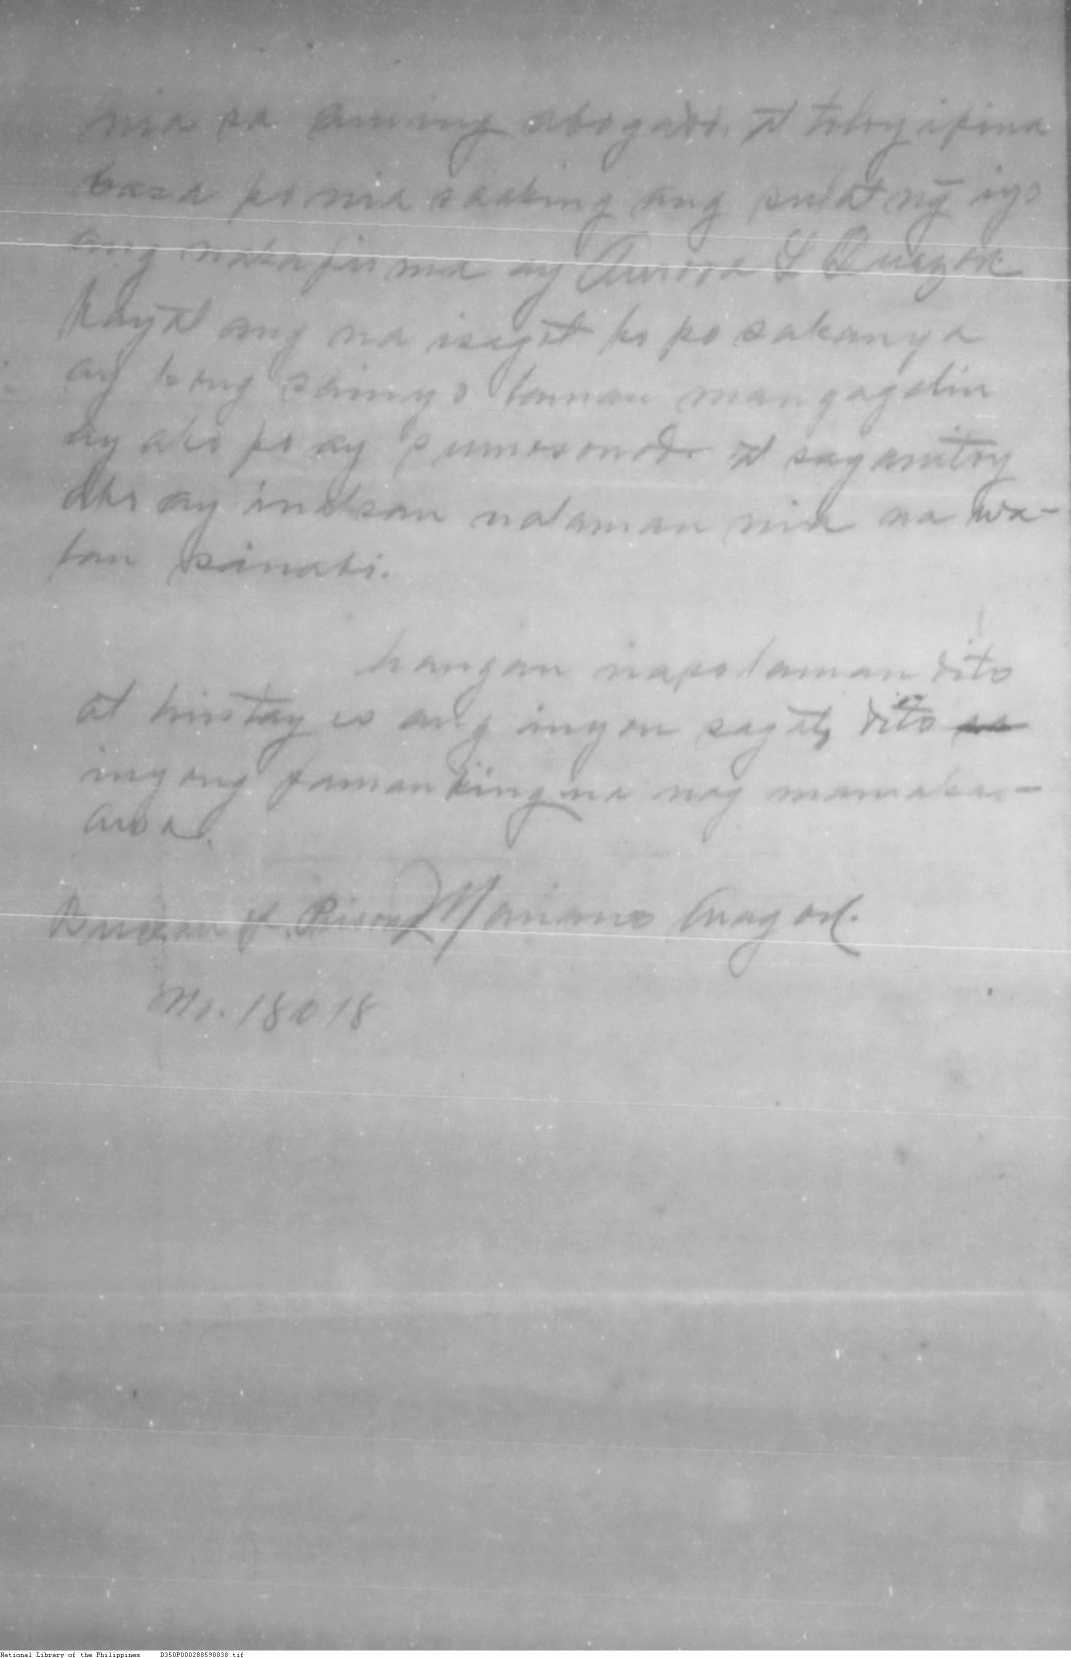 nia sa aming abogado, at toloy ipina
basa po nia saaking ang sulat ng̃ iyo
ang nakafirma ay Aurora L Quezon
kayat ang na isagot ko po sakanya
ay kong sainyo laman mangagalin
ay ako po ay sumosonodo at saganitoy
ako ay inalsan nalaman nia na wa-
lan sinabi.
hangan napolaman dito
at hinstay co ang inyon sagot, dito
inyong famankingna nag mamaka-
awa.
Bureau of Prison Mariano Aragon.
No. 18018
National Library of the Philippines D350P000288590838.tif